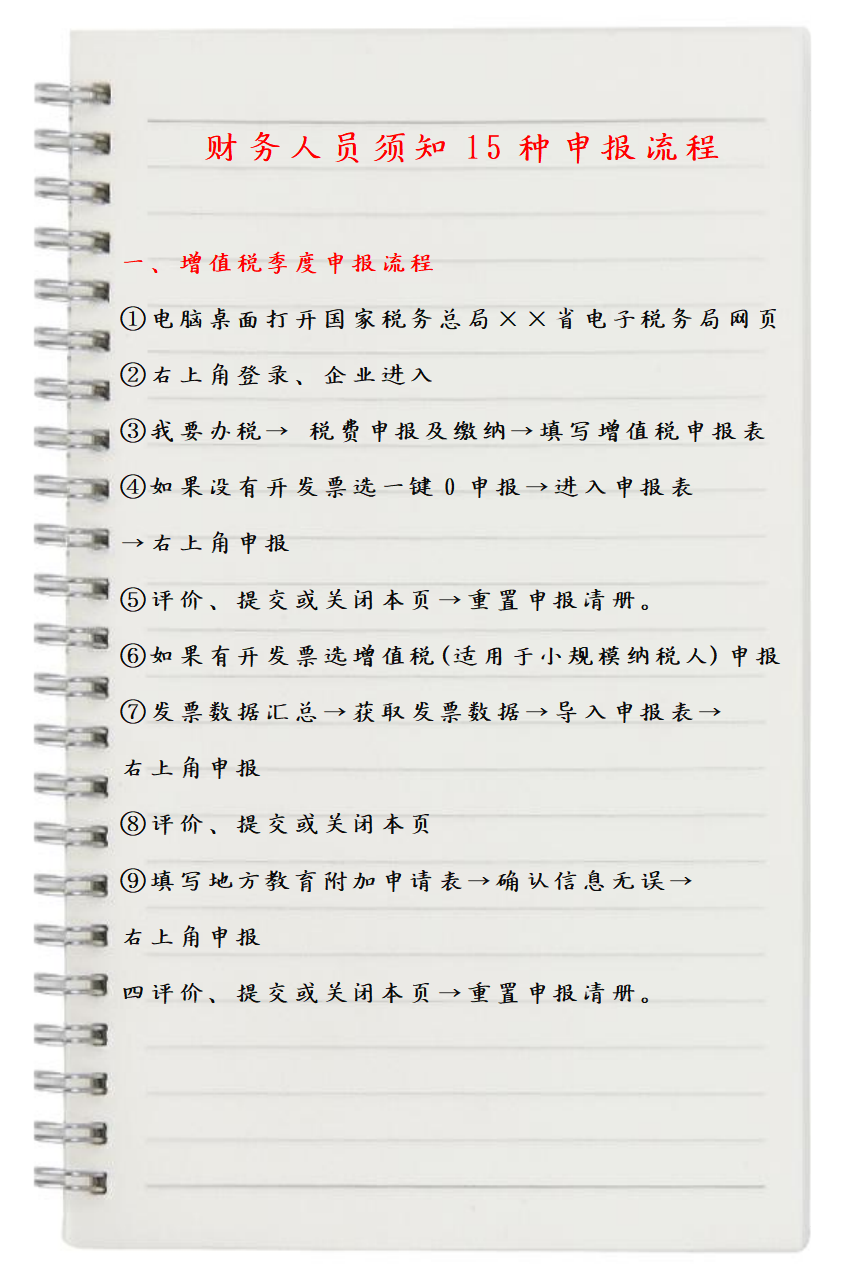 财务人员须知15种申报流程
一、增值税季度申报流程
①电脑桌面打开国家税务总局××省电子税务局网页
②右上角登录、企业进入
③我要办税→ 税费申报及缴纳→填写增值税申报表
④如果没有开发票选一键0申报→进入申报表
→右上角申报
⑤评价、提交或关闭本页→重置申报清册。
⑥如果有开发票选增值税(适用于小规模纳税人)申报
⑦发票数据汇总→获取发票数据→导入申报表→
右上角申报
⑧评价、提交或关闭本页
⑨填写地方教育附加申请表→确认信息无误→
右上角申报
四评价、提交或关闭本页→重置申报清册。